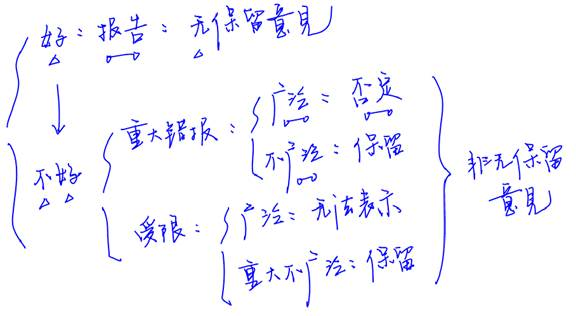 好：报告：无保留意见
不好
重大错报：
广泛：否定
不广泛：保留
受限：
广泛：无法表示
重大不广泛：保留
非无保留
意见